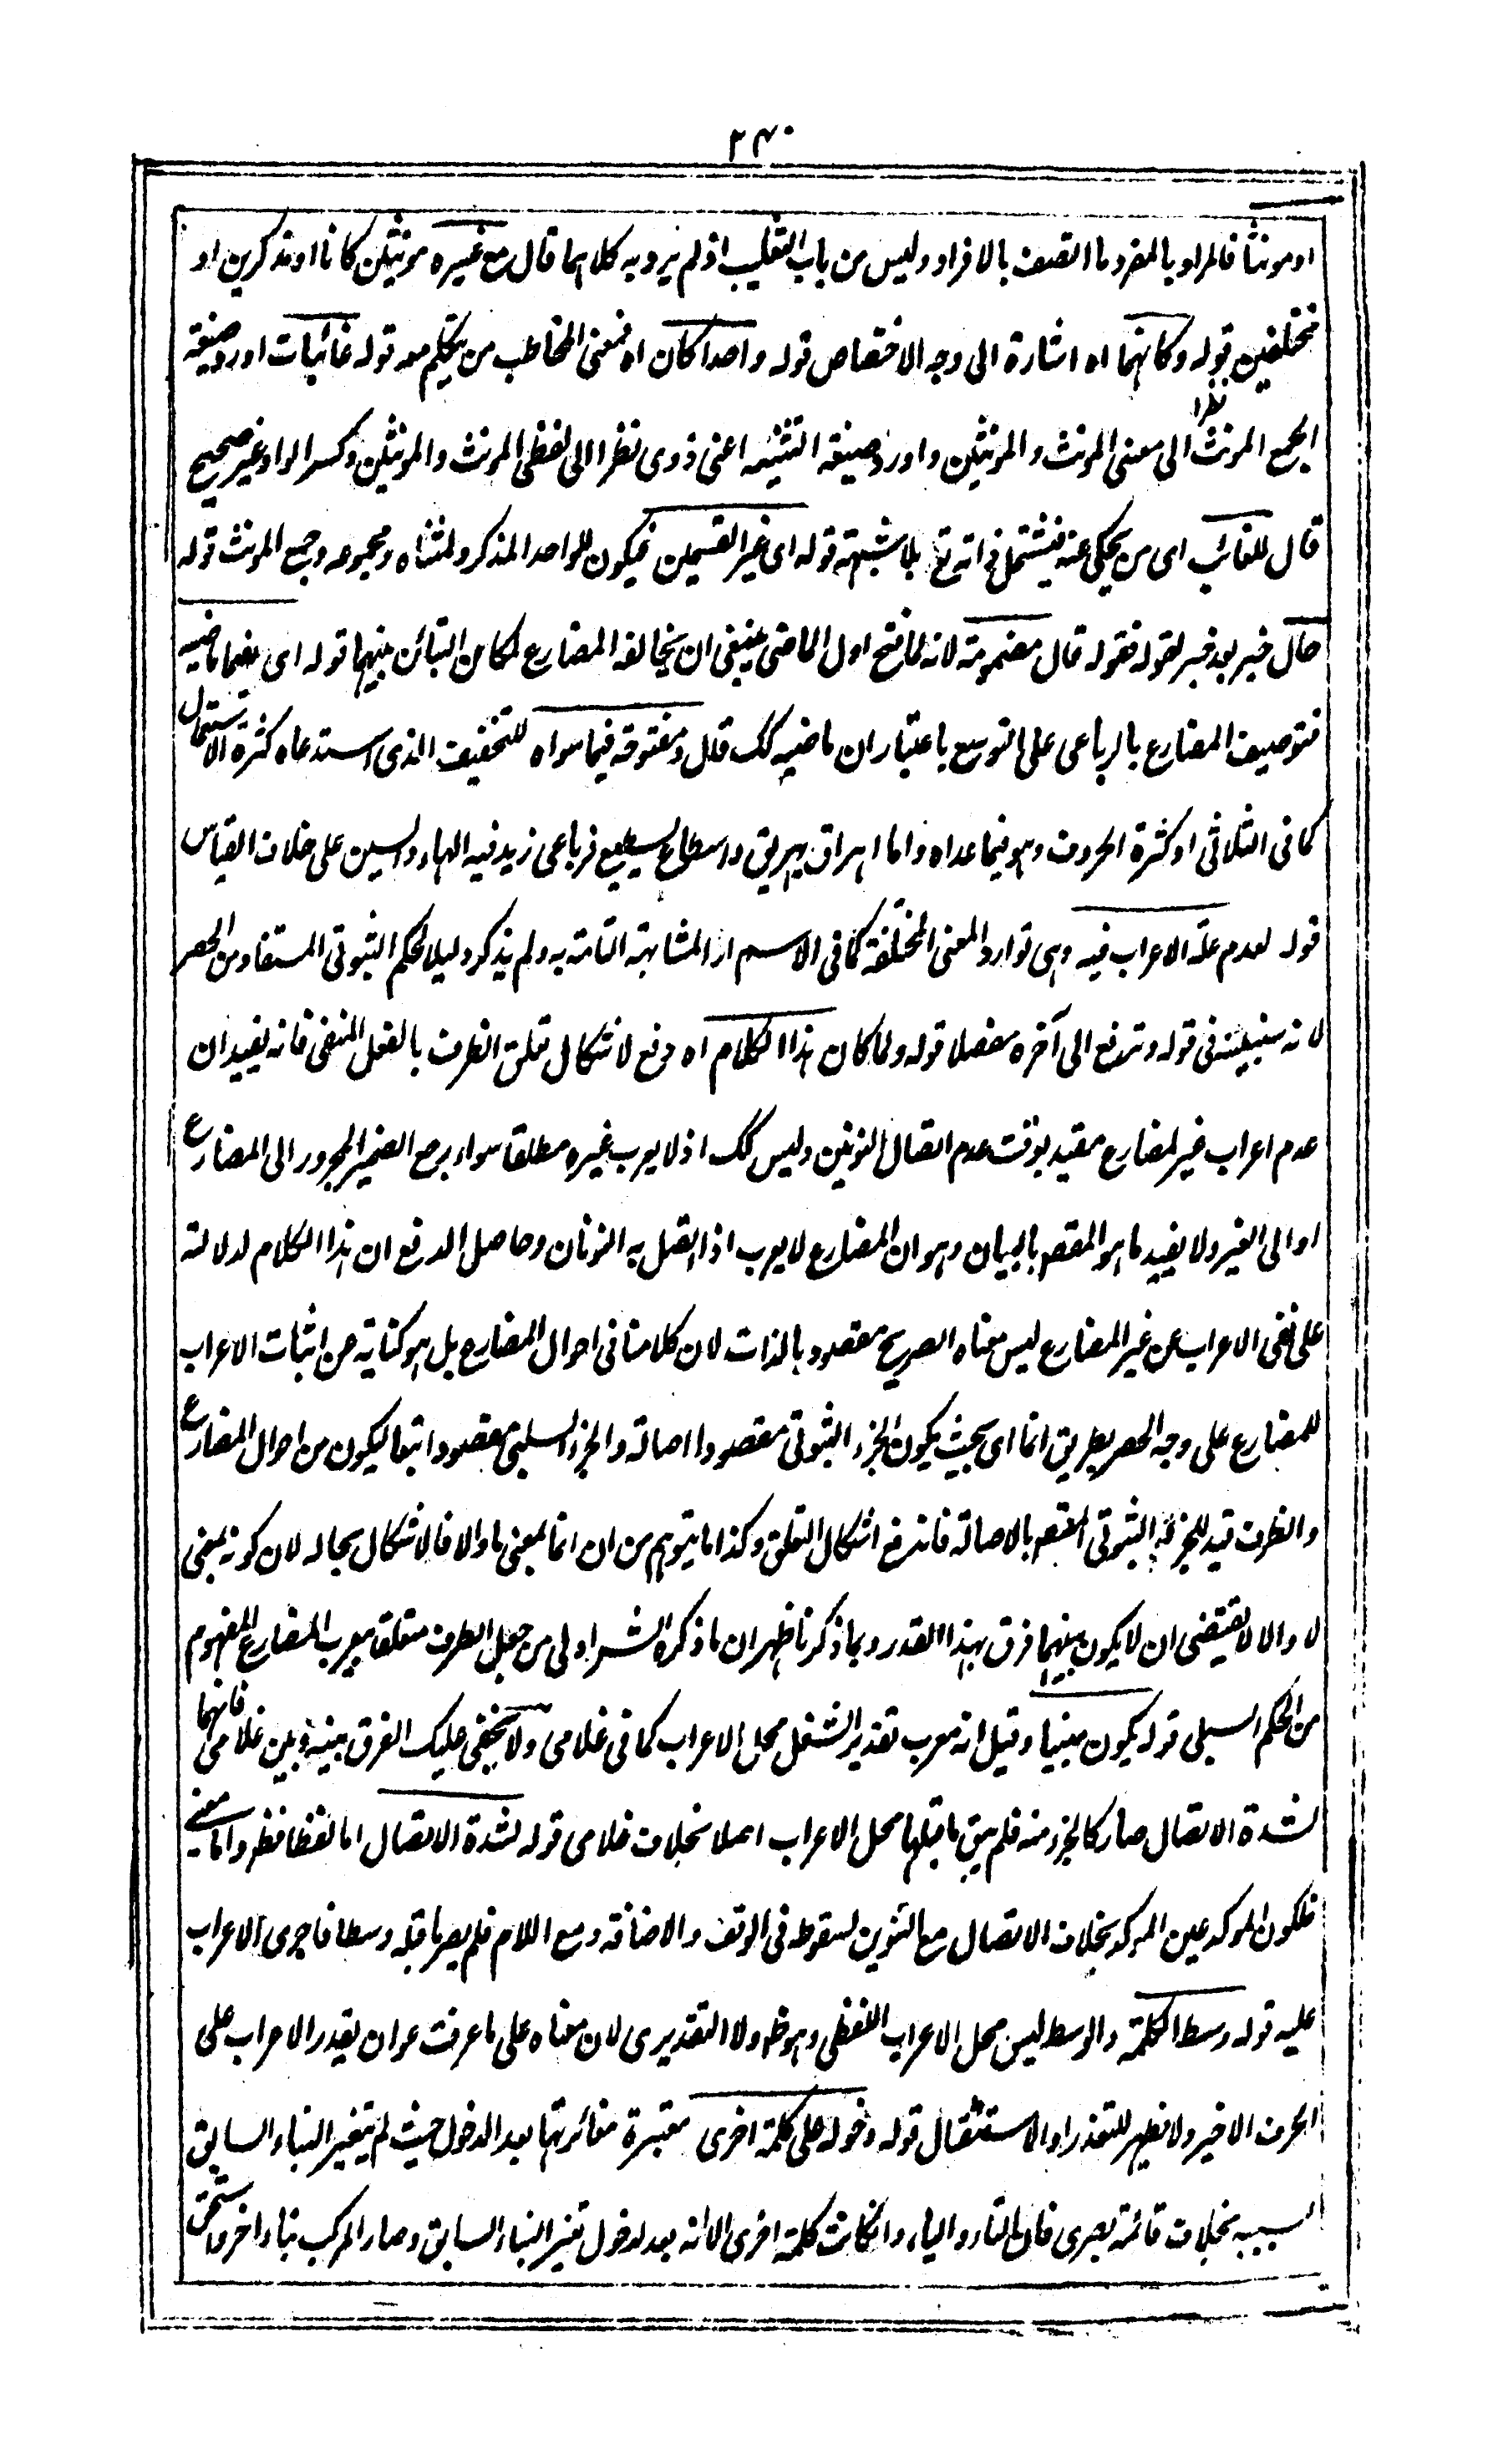 ٢٤٠
او مونثا فالمراد بالمفرد ما اتصف بالافراد وليس من باب التغليب اذ لم يرد به كلاهما قال مع غيره مونثين كانا او مذكرين او
مختلفين قوله وكانهما اه اشارة الى وجه الاختصاص قوله واحدا كان اه فمعنى المخاطب من يتكلم معه قوله غائبات اورد صيغة
الجمع المونث نظرا الى معنى المونث والمونثين واورد صيغة التثنيه اعنى ذوى نظرا الى لفظى المونث والمونثين وكسر الواو غير صحيح
قال للغائب اى من يحكى عنه فيشتمل ذاته تع بلا شبهة قوله اى غير القسمين فيكون للواحد المذكر ولمثناه ومجموعه وجمع المونث قوله
حال خبر بعد خبر لقوله فقوله قال مضمومة لانه لما فتح اول الماضى فينبغى ان يخالفه المضارع لمكا من التبائن بينهما قوله اى فيما ماضيه
فتوصيف المضارع بالرباعى على التوسع باعتبار ان ماضيه كك قلل ومفتوحة فيما سواه للتخفيف الذى استدعاه كثرة الاستعمال
كما فى الثلاثى او كثرة الحروف وهو فيما عداه واما اهراق يهريق واسطاع يسطيع فرباعى زيد فيه الهاء والسين على خلاف القياس
قوله لعدم علة الاعراب فيه وهى توارد المعنى المختلفة كما فى الاسم او المشابهة التامة به ولم يذكر دليلا لحكم الثبوتى المستفاد من الحصر
لانه سيبينه فى قوله وترفع الى آخره مفصلا قوله ولما كان هذا الكلام اه دفع لاشكال تعلق الظرف بالفعل المنفى فانه يفيد ان
عدم اعراب غير المضارع مقيد بوقت عدم اتصال النونين وليس كك اذ لا يعرب غيره مطلقا سواء رجع الضمير المجرور الى المضارع
او الى الغير ولا يفيد ما هو المقصو بالبيان وهو ان المضارع لا يعرب اذا اتصل به النونان وحاصل الدفع ان هذا الكلام لدلالته
على نفى الاعراب عن غير المضارع ليس معناه الصريح مقصود بالذات لان كلامنا فى احوال المضارع بل هو كناية عن اثبات الاعراب
للمضارع على وجه الحصر بطريق انما اى بحيث يكون الجزء الثبوتى مقصودا اصالة والجزء السلبى مقصودا تبعا ليكون من احوال المضارع
والظرف قيد للجزء الثبوتى المقصو بالاصالة فاندفع اشكال التعلق وكذا ما يتوهم من ان انما بمعنى ما والا فالاشكال بحاله لان كونه بمعنى
لا والا لا يقتضى ان لا يكون بينهما فرق بهذا القدر وبما ذكرنا ظهر ان ما ذكره الشر اولى من جعل الظرف متعلقا بيعرب المضارع المفهوم
من الحكم السلبى قوله يكون مبنيا وقيل انه معرب تقدير الشغل محل الاعراب كما فى غلامى ولا يخفى عليك الفرق بينه وبين غلامى فانهما
لشدة الاتصال صار كالجزء منه فلم يبق ما قبلها محل الاعراب اصلا بخلاف غلامى قوله لشدة الاتصال اما لفظا فظ واما معنى
فلكون الموكد عين الموكد بخلاف الاتصال مع التنوين لسقوطه فى الوقف والاضافة ومع اللام فلم يصر ما قبله وسطا فاجرى الاعراب
عليه قوله وسط الكلمة والوسط ليس محل الاعراب اللفظى وهو ظ ولا التقديرى لان معناه على ما عرفت هو ان يقدر الاعراب على
الحرف الاخير ولا يظهر للتعذر او الاستثقال قوله دخوله على كلمة اخرى معتبرة مغائرتها بعد الدخول حيث لم يتغير البناء السابق
السببه بخلاف قائمة بصرى فان التاء والياء وانكانت كلمة اخرى الا انه بعد لدخول تغير البناء السابق وصار المركب بناء اخر واستحق